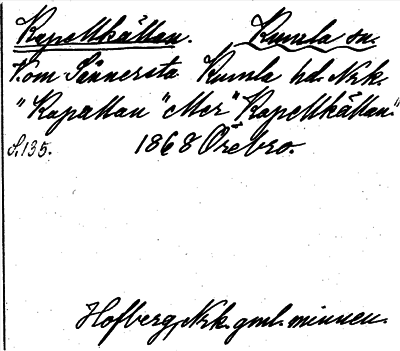 Kapellkällan. Kumla sn.
V. om Sånnersta Kumla hd. Nrk.
"Kapällan" eller "Kapellkällan."
S. 135. 1868 Örebro.
Hofberg, Nrk. gml. minnen.